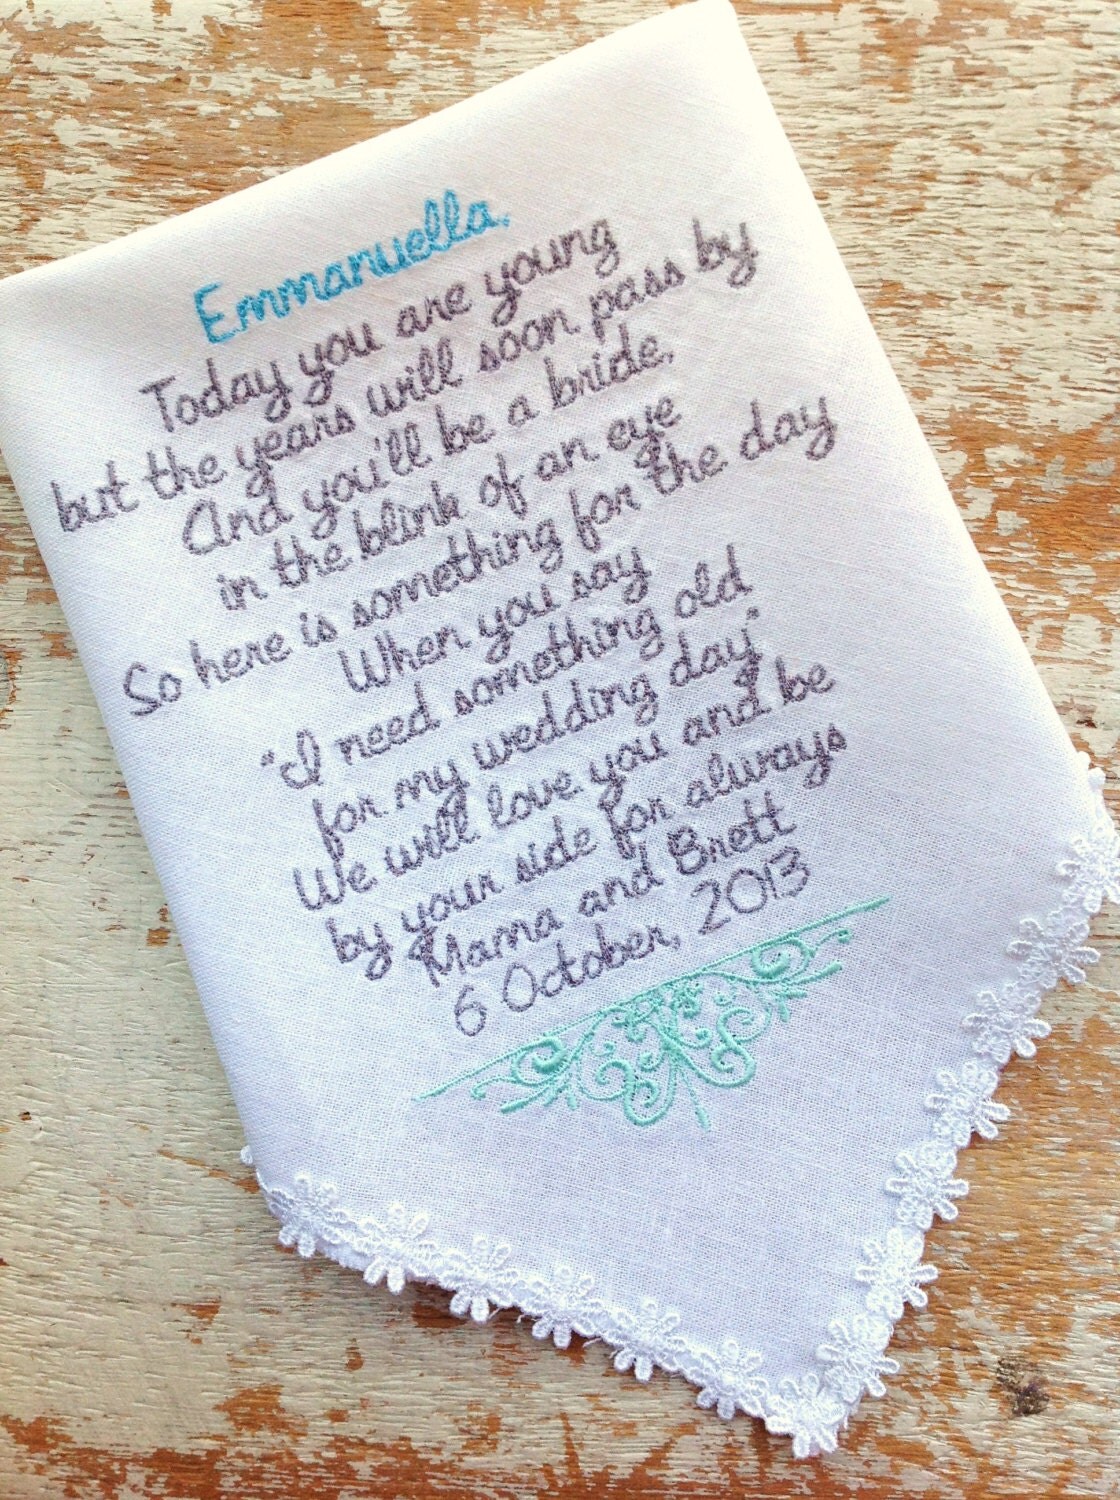 Emmanuella,
Today you are young
but the years will soon pass by
And you'll be a bride,
in the blink of an eye
So here is something for the day
When you say
"I need something old
for my wedding day"
We will love you and be
by your side for always
Mama and Brett
6 October, 2013